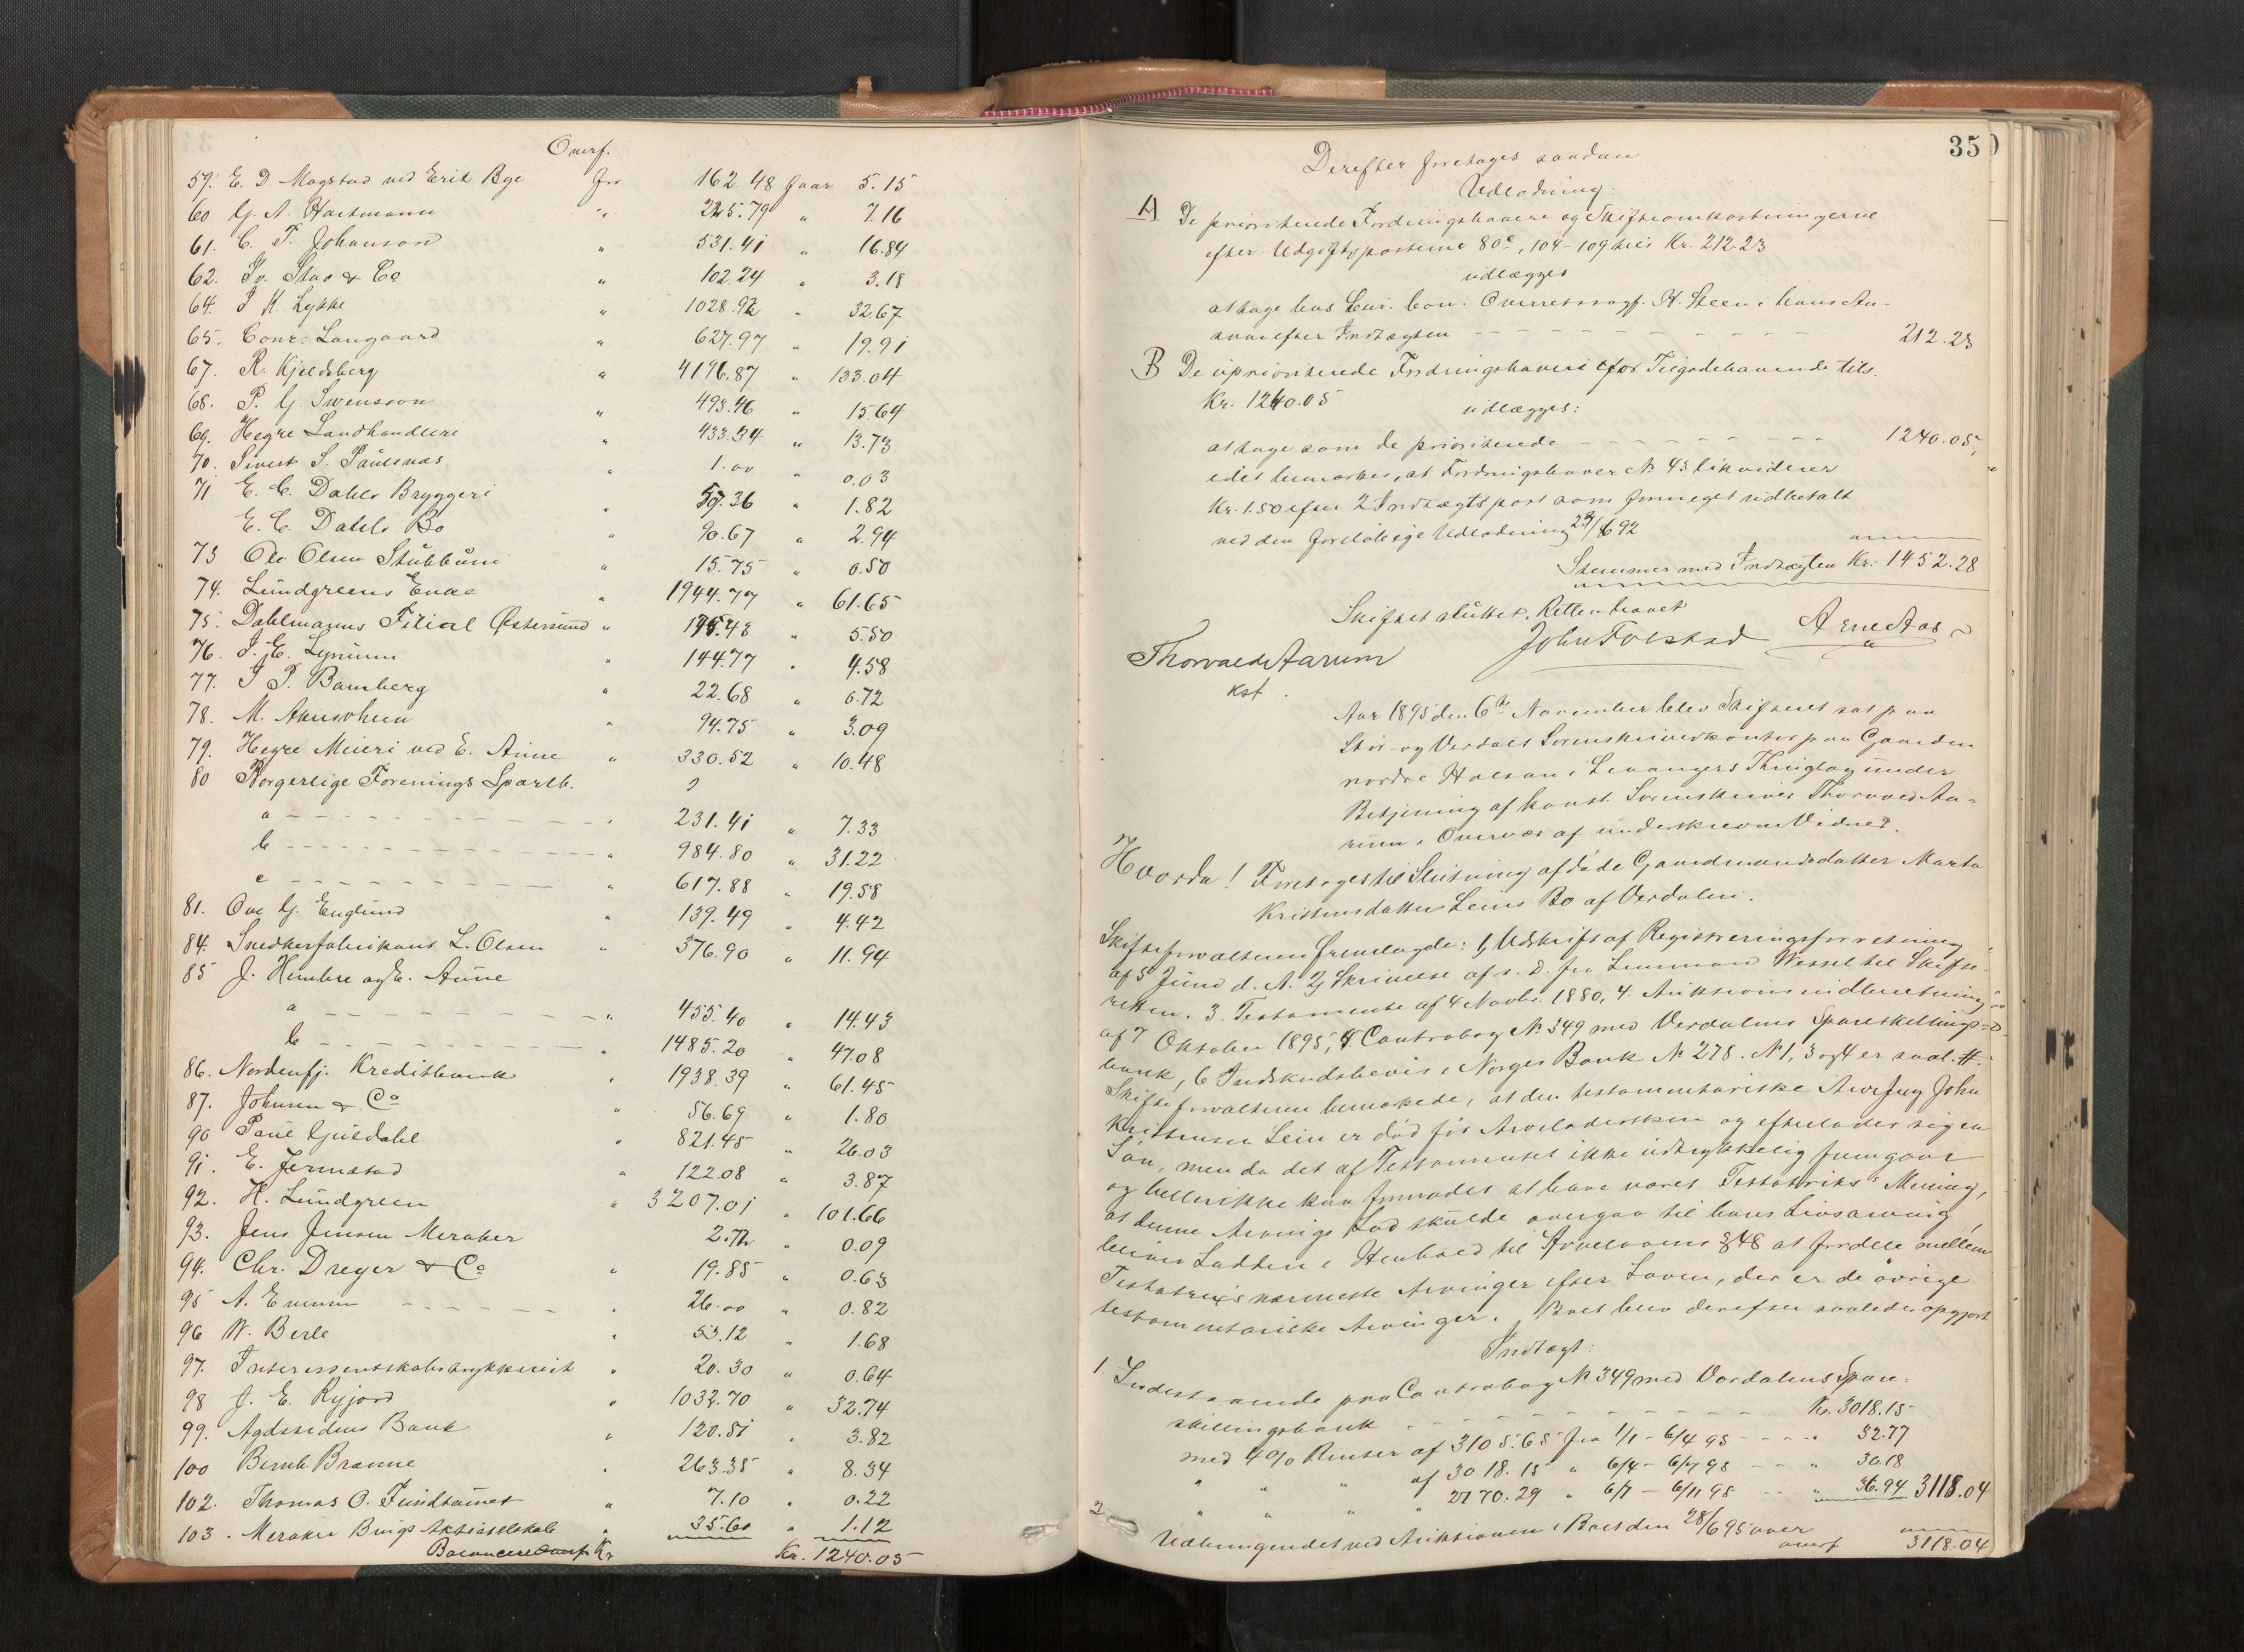 Overf.
59. E. D. Magstad ved Erik Bye for 162.48 faar 5.15
60 G. A. Hartmann " 225.79 " 7.16
61. C. P. Johanson " 531.41 " 16.84
62. Sv. Stav & Co " 102.24 " 3.18
64. I K Lykke " 1028.92 " 32.67
65. Conr. Langaard " 627.97 " 19.91
67. R. Kjeldsberg " 4196.87 " 133.04
68. P. G. Svensson " 493.46 " 15.64
69. Hegre Landhandleri " 433.34 " 13.73
70. Sivert S. Paulsnas " 1.00 " 0.03
71 E. C. Dahls Bryggeri " 57.36 " 1.82
E. C. Dahls Bo " 90.67 " 2.94
73 Ole Olsen Stubban " 15.75 " 0.50
74. Lundgreens Enke " 1944.77 " 61.65
75. Dahlmanns Filial Østersund " 175.43 " 5.50
76. J. E. " 144.77 " 4.58
77. I P. Bamberg " 22.68 " 0.72
78. M. " 94.75 " 3.09
79. Hegre Meieri ved E. Aune " 330.52 " 10.48
80 Borgerlige Forenings Spareb.
a " 231.41 " 7.33
b " 984.80 " 31.22
c " 617.88 " 19.58
81. Ove G. Englund " 139.49 " 4.42
84. Snedkerfabrikant L. Olsen " 376.90 " 11.94
85 J. Hembre og E. Aune
a " 455.40 " 14.43
b " 1485.20 " 47.08
86. Nordenfj. Kreditbank " 1938.39 " 61.45
87. Johnsen & Co " 56.69 " 1.80
90 Paul Guldahl " 821.45 " 26.03
91. E. Jermstad " 122.08 " 3.87
92. H. Lundgreen " 3207.01 " 101.66
93. Jens Jensen Meraker 2.72 " 0.09
94. Chr. Dreyer & Co " 19.85 " 0.63
95 A. " 26.00 " 0.82
96 W. Berle " 53.12 " 1.68
97. Interessentskabstrykkeriet " 20.30 " 0.64
98 J. E. Ryjord " 1032.70 " 32.74
99. Agdesidens Bank " 120.51 " 3.82
100 Bernh Branne " 263.35 " 8.34
102. Thomas O. Fundtaunet " 7.10 " 0.22
103. Meraker Brugs Aktieselskab " 35.60 " 1.12
Balancere Kr Kr. 1240.05
350
Derefter foretoges saadan
Udlodning:
A De prioriterede Fordringshavere og Skifteomkostningerne
efter Udgiftsposterne 80c, 104-109 tils Kr. 212.23
udlægges
at tage hos Cur. bon. Overretssagf. H. Steen i hans An-
svar efter Indtægten 212.23
B De uprioriterede Fordringshavere for Tilgodehavende tils.
Kr. 1240.05 udlægges:
at tage som de prioriterede 1240.05,
idet bemærkes, at Fordringshaver No 43 likviderer
Kr. 1.50 efter 2 Indtægtspost som formeget udbetalt
ved den foreløbige Udlodning 29/6 92
Stemmer med Indtægten Kr. 1452.28
Skiftet sluttet. Retten hævet
Thorvald Aarum John Tolstad Arne Aas
kst.
Aar 1895 den 6te November blev Skifteret sat paa
Stør- og Verdals Sorenskriverkontor paa Gaarden
nordre Halsan i Levangers Thinglag under
Betjening af konst. Sorenskriver Thorvald Aa-
rum i Overvær af underskrevne Vidner.
Hvorda! Foretoges til Slutning afdøde Gaardmandsdatter Marta
Kristensdatter Leins Bo af Verdalen.
Skifteforvalteren fremlagde: 1, Udskrift af Registreringsforretning
af 5 Juni d. A. 2, Skrivelse af s. D. fra Lensmand Wessel til Skifte-
retten. 3. Testamente af 4 Novbr. 1880, 4. Auktionsindberetning
af 7 Oktober 1895, 5. Contrabog No 349 med Verdalens Spareskillings-
bank, 6 Indskudsbevis i Norges Bank No 278. No 1, 3 og 4 er saal. #.
Skifteforvalteren bemærkede, at den testamentariske Arving John
Kristensen Lein er død før Arveladersken og efterlader sig en
Søn, men da det af Testamentet ikke udtrykkelig fremgaar
og heller ikke kan formodes at have været Testatrix's Mening,
at denne Arvings Lod skulde overgaa til hans Livsarving,
bliver Lodden i Henhold til Arvelovens § 48 at fordele mellem
Testatrix's nærmeste Arvinger efter Loven, der er de øvrige
testamentariske Arvinger. Boet blev derefter saaledes opgjort
Indtægt:
1. Indestaaende paa Contrabog No 349 med Verdalens Spare-
skillingsbank Kr. 3018.15
med 4% Renter af 3105.65 fra 1/1 - 6/4 95 " 32.77
" " " af 3018.15 " 6/4 - 6/7 95 " 30.18
" " " " 2770.29 " 6/7 - 6/11 95 " 36.94 3118.04
2 Udbringendet ved Auktionen i Boet den 28/6 95 over
overf 3118.04